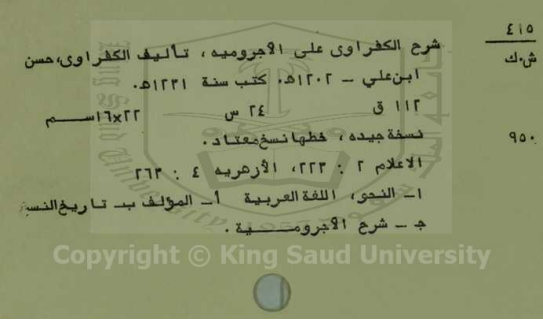 ٤١٥
ش.ك
شرح الكفراوى على الاجروميه، تأليف الكفراوى، حسن
ابن علي - ١٢٠٢هـ. كتب سنة ١٢٣١هـ.
١١٢ ق ٢٤ س ٢٢×١٦ سم
نسخة جيده، خطها نسخ معتاد.
٩٥٠
الاعلام ٢ : ٢٢٣، الأزهريه ٤ : ٢٦٣
١- النحو، اللغة العربية أ- المؤلف ب- تاريخ النسـ
جـ - شرح الاجرومـيـة.
Copyright © King Saud University